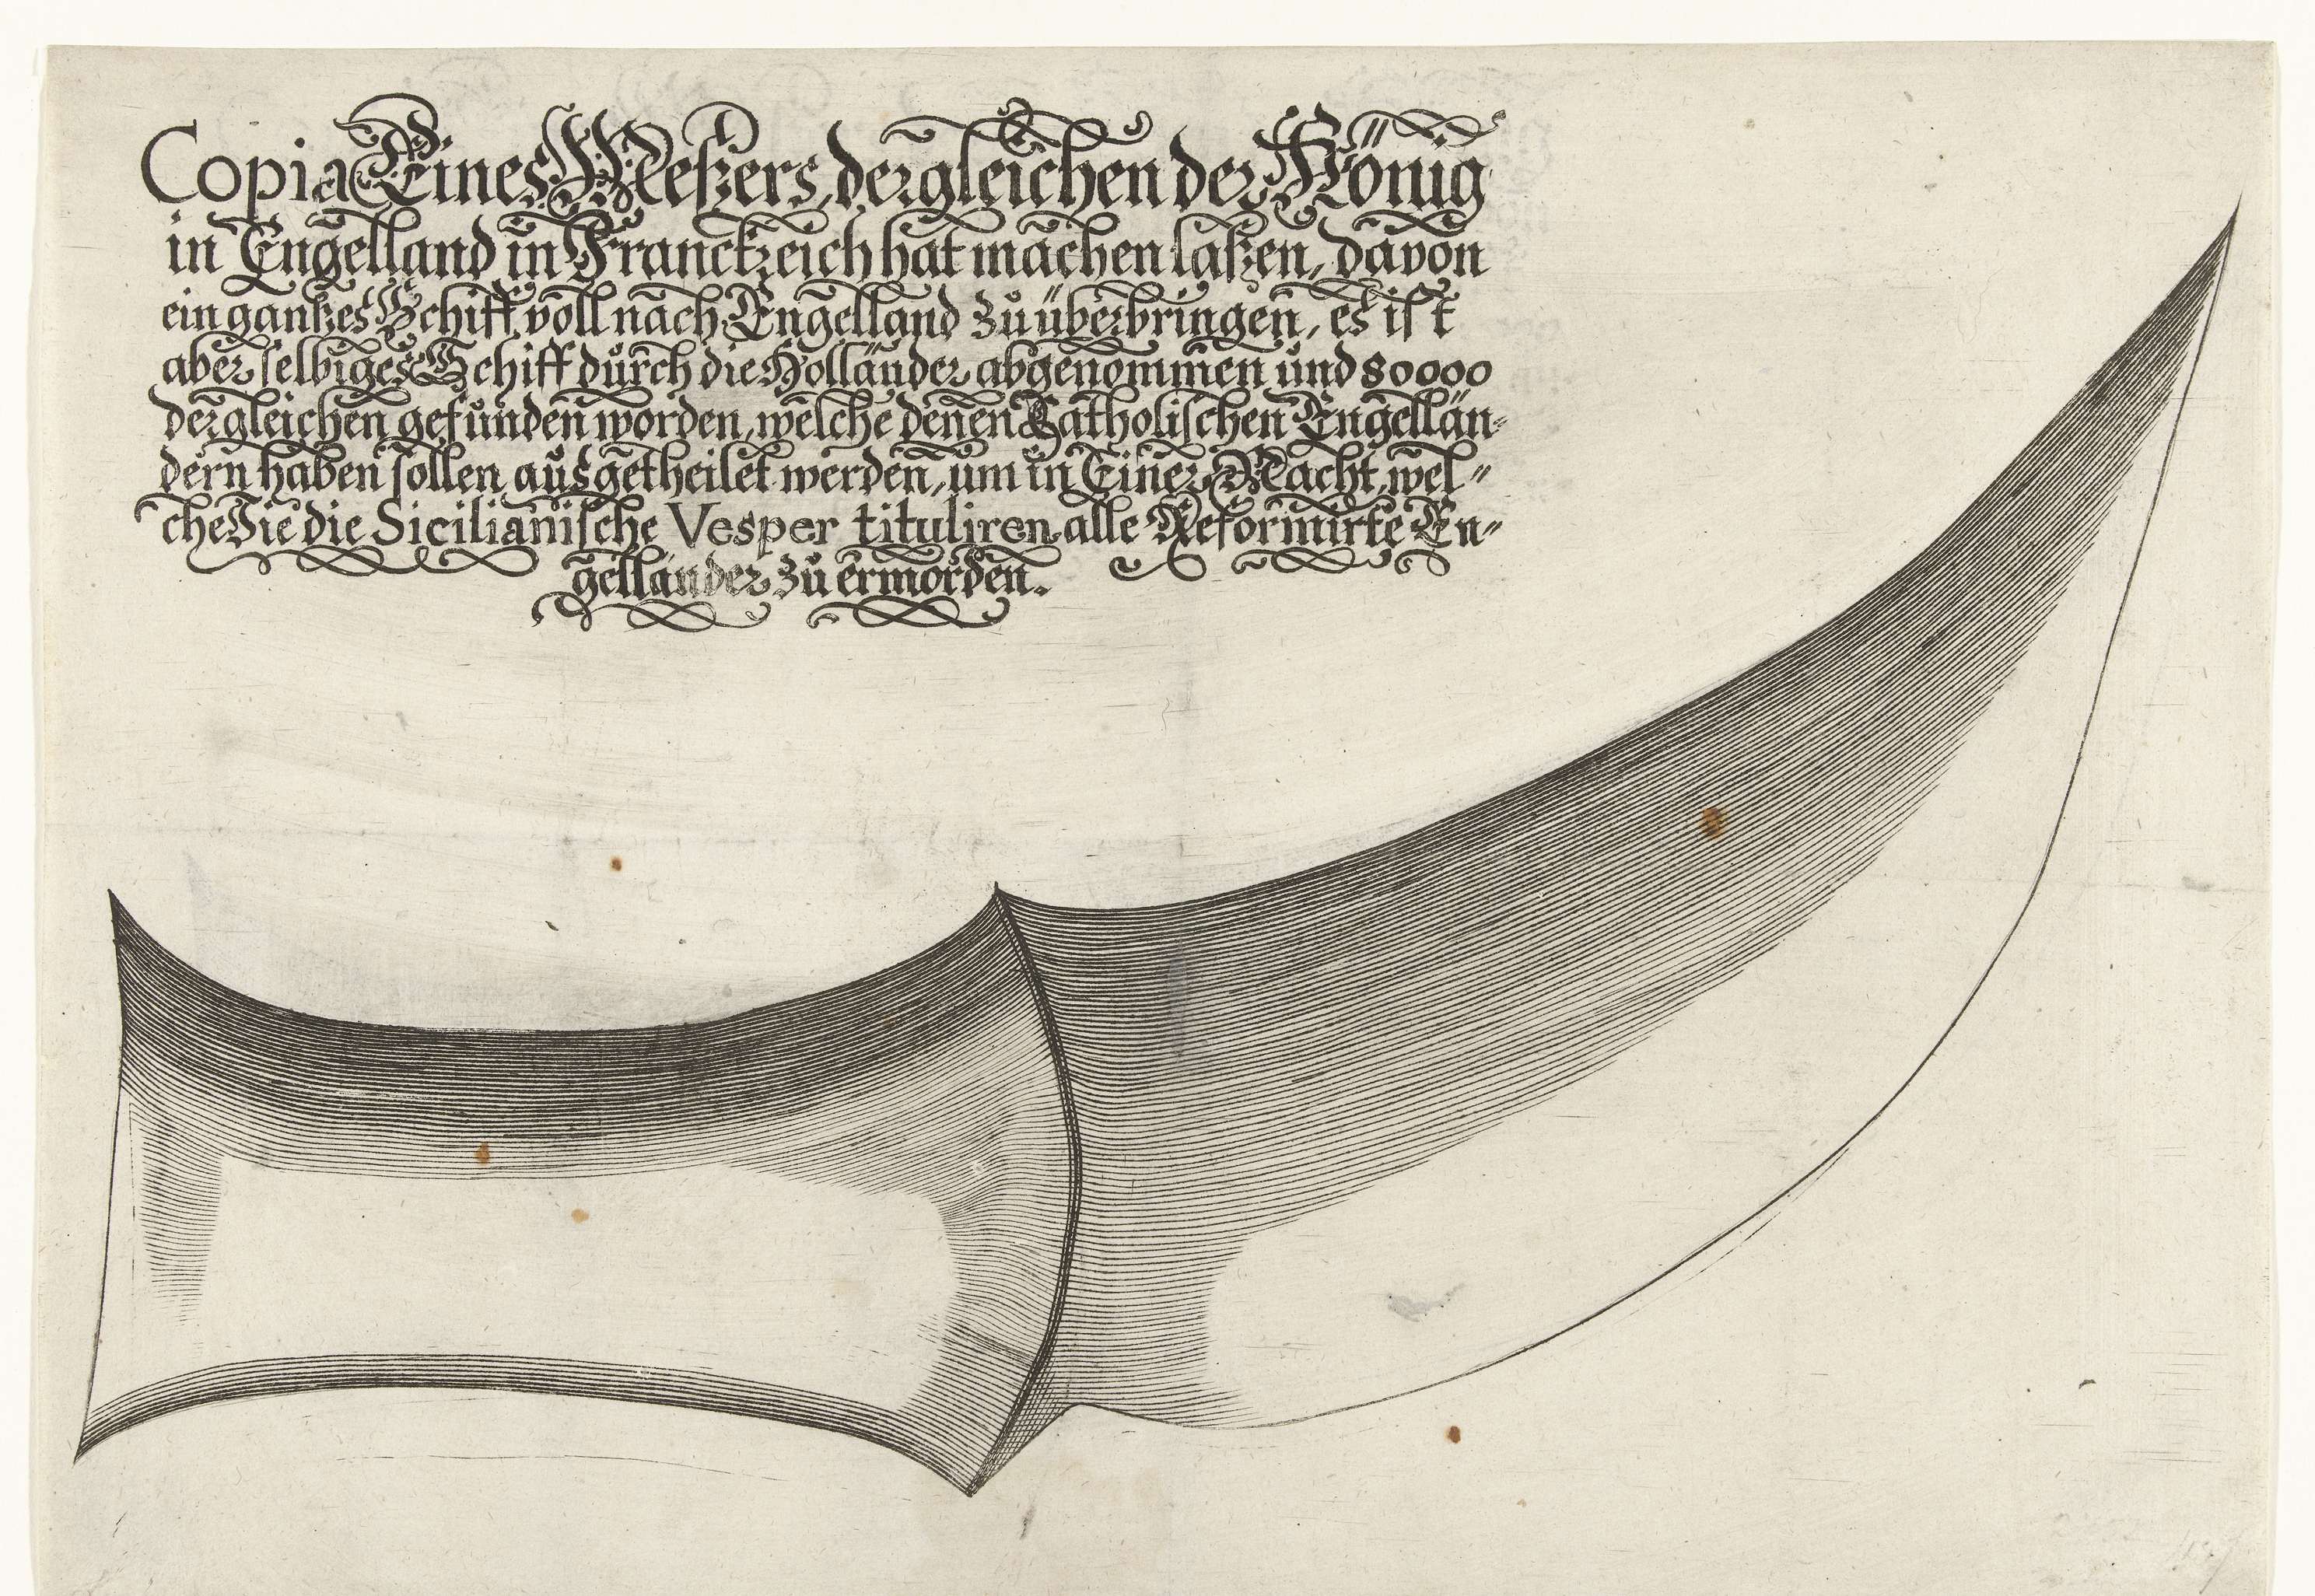 Copia Eines Meßers, dergleichen der König
in Engelland in Franckreich hat machen laßen, davon
ein gantzes Schiff voll nach Engelland zu überbringen, es ist
aber selbiges Schiff durch die Holländer abgenommen und 80000
dergleichen gefunden worden, welche denen Catholischen Engellän-
dern haben sollen ausgetheilet werden, um in Einer Nacht, wel-
che Sie die Sicilianische Vesper tituliren alle Reformirte En-
gelländer zu ermorden.